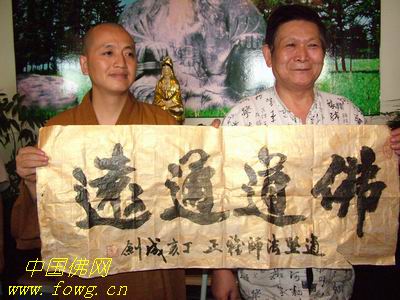 佛道通遠
道堅法師雅正 丁亥成剑
中国佛网
www.fowg.cn